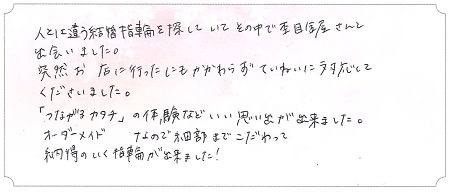 人とは違う結婚指輪を探していてその中で杢目金屋さんと
出会いました。
突然お店に行ったにもかかわらずていねいに対応して
くださいました。
「つながるカタチ」の体験などいい思い出が出来ました。
オーダーメイドなので細部までこだわって
納得のいく指輪が出来ました！